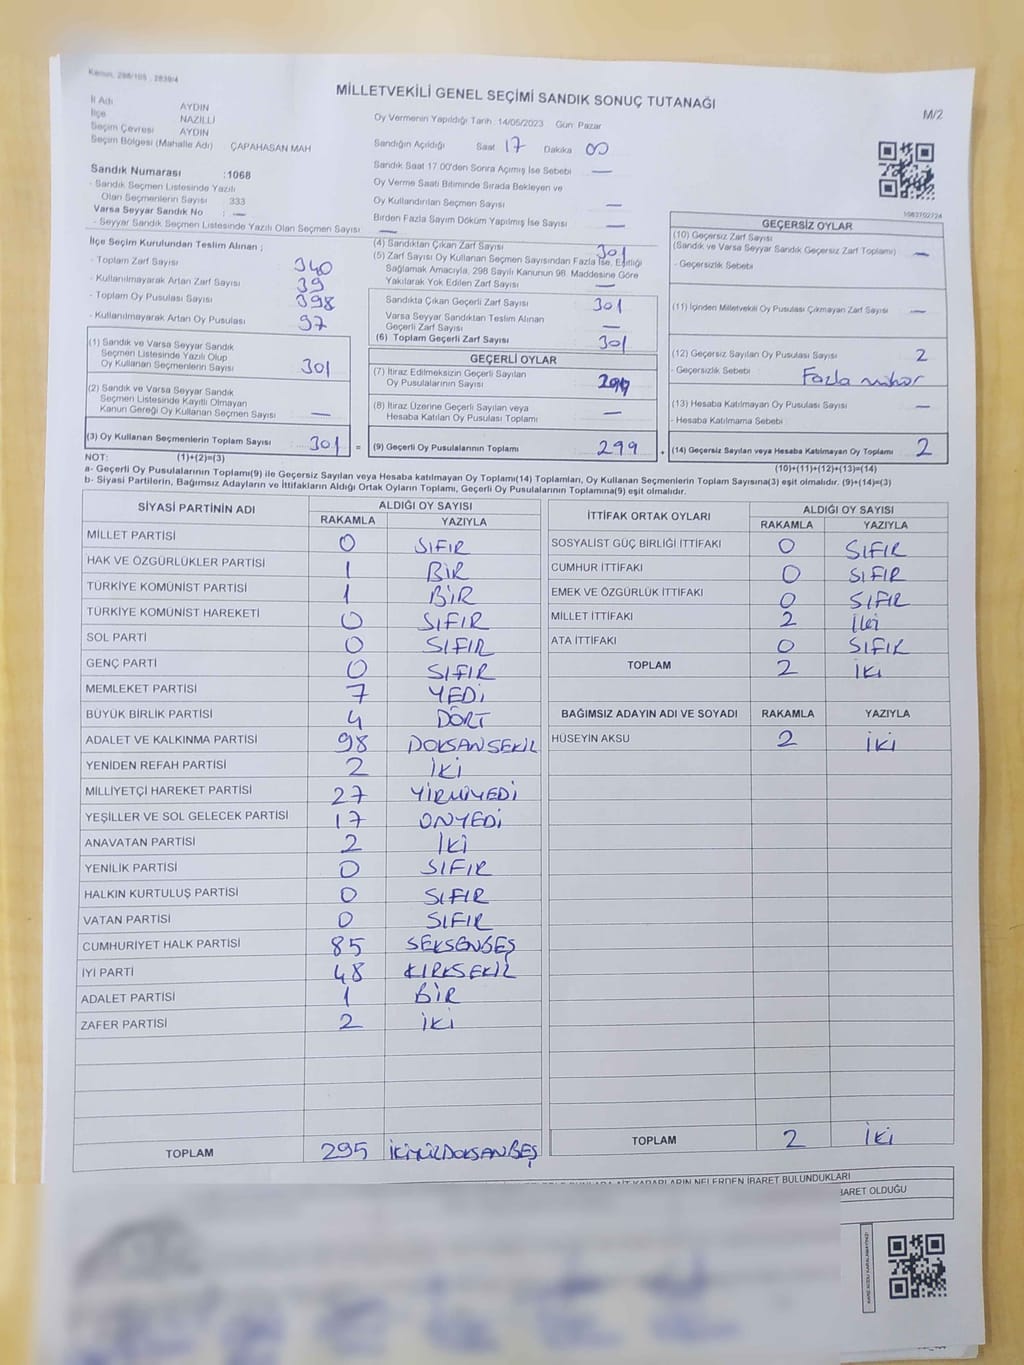 Kanun, 298/105 , 2839/4
MİLLETVEKİLİ GENEL SEÇİMİ SANDIK SONUÇ TUTANAĞI
M/2
İl Adı AYDIN
İlçe NAZİLLİ
Seçim Çevresi AYDIN
Seçim Bölgesi (Mahalle Adı) ÇAPAHASAN MAH
Sandık Numarası :1068
- Sandık Seçmen Listesinde Yazılı
Olan Seçmenlerin Sayısı : 333
Varsa Seyyar Sandık No : —
- Seyyar Sandık Seçmen Listesinde Yazılı Olan Seçmen Sayısı : —
Oy Vermenin Yapıldığı Tarih :14/05/2023 Gün: Pazar
Sandığın Açıldığı Saat 17 Dakika 00
Sandık Saat 17.00'den Sonra Açımış İse Sebebi —
Oy Verme Saati Bitiminde Sırada Bekleyen ve
Oy Kullandırılan Seçmen Sayısı —
Birden Fazla Sayım Döküm Yapılmış İse Sayısı —
İlçe Seçim Kurulundan Teslim Alınan ;
- Toplam Zarf Sayısı 340
- Kullanılmayarak Artan Zarf Sayısı 39
- Toplam Oy Pusulası Sayısı 398
- Kullanılmayarak Artan Oy Pusulası 97
(1) Sandık ve Varsa Seyyar Sandık
Seçmen Listesinde Yazılı Olup
Oy Kullanan Seçmenlerin Sayısı 301
(2) Sandık ve Varsa Seyyar Sandık
Seçmen Listesinde Kayıtlı Olmayan
Kanun Gereği Oy Kullanan Seçmen Sayısı —
(3) Oy Kullanan Seçmenlerin Toplam Sayısı 301 =
(4) Sandıktan Çıkan Zarf Sayısı 301
(5) Zarf Sayısı Oy Kullanan Seçmen Sayısından Fazla İse, Eşitliği
Sağlamak Amacıyla, 298 Sayılı Kanunun 98. Maddesine Göre
Yakılarak Yok Edilen Zarf Sayısı —
Sandıkta Çıkan Geçerli Zarf Sayısı 301
Varsa Seyyar Sandıktan Teslim Alınan
Geçerli Zarf Sayısı —
(6) Toplam Geçerli Zarf Sayısı 301
GEÇERLİ OYLAR
(7) İtiraz Edilmeksizin Geçerli Sayılan
Oy Pusulalarının Sayısı 299
(8) İtiraz Üzerine Geçerli Sayılan veya
Hesaba Katılan Oy Pusulaları Toplamı —
(9) Geçerli Oy Pusulalarının Toplamı 299 +
1063702724
GEÇERSİZ OYLAR
(10) Geçersiz Zarf Sayısı
(Sandık ve Varsa Seyyar Sandık Geçersiz Zarf Toplamı) —
- Geçersizlik Sebebi
(11) İçinden Milletvekili Oy Pusulası Çıkmayan Zarf Sayısı —
(12) Geçersiz Sayılan Oy Pusulası Sayısı 2
- Geçersizlik Sebebi Fazla mühür
(13) Hesaba Katılmayan Oy Pusulası Sayısı —
- Hesaba Katılmama Sebebi
(14) Geçersiz Sayılan veya Hesaba Katılmayan Oy Toplamı 2
NOT: (1)+(2)=(3) (10)+(11)+(12)+(13)=(14)
a- Geçerli Oy Pusulalarının Toplamı(9) ile Geçersiz Sayılan veya Hesaba katılmayan Oy Toplamı(14) Toplamları, Oy Kullanan Seçmenlerin Toplam Sayısına(3) eşit olmalıdır. (9)+(14)=(3)
b- Siyasi Partilerin, Bağımsız Adayların ve İttifakların Aldığı Ortak Oyların Toplamı, Geçerli Oy Pusulalarının Toplamına(9) eşit olmalıdır.
SİYASİ PARTİNİN ADI ALDIĞI OY SAYISI
RAKAMLA YAZIYLA
MİLLET PARTİSİ 0 SIFIR
HAK VE ÖZGÜRLÜKLER PARTİSİ 1 BİR
TÜRKİYE KOMÜNİST PARTİSİ 1 BİR
TÜRKİYE KOMÜNİST HAREKETİ 0 SIFIR
SOL PARTİ 0 SIFIR
GENÇ PARTİ 0 SIFIR
MEMLEKET PARTİSİ 7 YEDİ
BÜYÜK BİRLİK PARTİSİ 4 DÖRT
ADALET VE KALKINMA PARTİSİ 98 DOKSANSEKİZ
YENİDEN REFAH PARTİSİ 2 İKİ
MİLLİYETÇİ HAREKET PARTİSİ 27 YİRMİYEDİ
YEŞİLLER VE SOL GELECEK PARTİSİ 17 ONYEDİ
ANAVATAN PARTİSİ 2 İKİ
YENİLİK PARTİSİ 0 SIFIR
HALKIN KURTULUŞ PARTİSİ 0 SIFIR
VATAN PARTİSİ 0 SIFIR
CUMHURİYET HALK PARTİSİ 85 SEKSENBEŞ
İYİ PARTİ 48 KIRKSEKİZ
ADALET PARTİSİ 1 BİR
ZAFER PARTİSİ 2 İKİ
TOPLAM 295 İKİYÜZDOKSANBEŞ
İTTİFAK ORTAK OYLARI ALDIĞI OY SAYISI
RAKAMLA YAZIYLA
SOSYALİST GÜÇ BİRLİĞİ İTTİFAKI 0 SIFIR
CUMHUR İTTİFAKI 0 SIFIR
EMEK VE ÖZGÜRLÜK İTTİFAKI 0 SIFIR
MİLLET İTTİFAKI 2 İKİ
ATA İTTİFAKI 0 SIFIR
TOPLAM 2 İKİ
BAĞIMSIZ ADAYIN ADI VE SOYADI RAKAMLA YAZIYLA
HÜSEYİN AKSU 2 İKİ
TOPLAM 2 İKİ
KARARLARIN NELERDEN İBARET BULUNDUKLARI
İBARET OLDUĞU